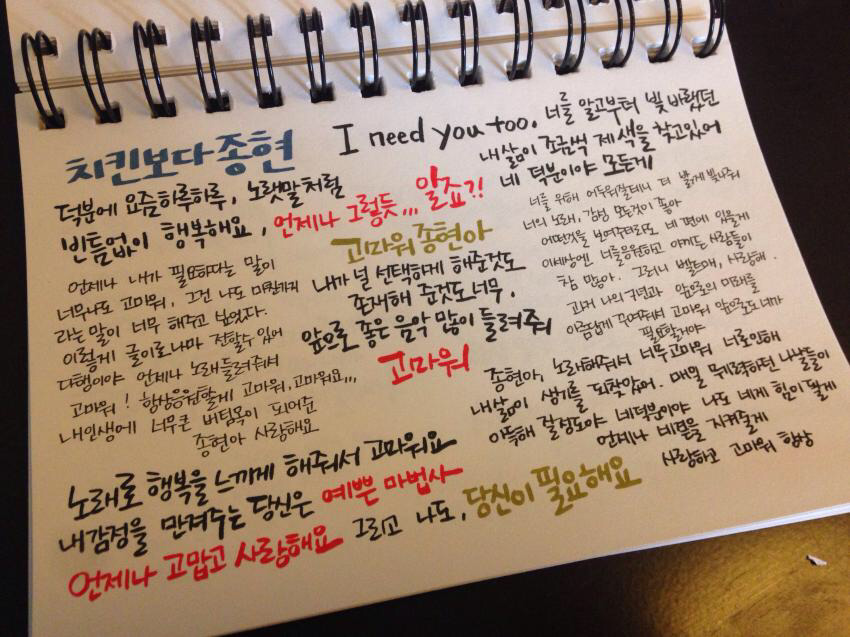 치킨보다종현
덕분에 요즘하루하루, 노랫말처럼
빈틈없이 행복해요, 언제나 그렇듯,,, 알죠?!
I need you too.
너를 알고부터 빛 바랬던
내 삶이 조금씩 제 색을 찾고있어
네 덕분이야 모든게
언제나 내가 필요하다는 말이
너무나도 고마워, 그건 나도 마찬가지
라는 말이 너무 해주고 싶었다.
이렇게 글이로나마 전할수 있어
다행이야 언제나 노래들려줘서
고마워! 항상응원할게 고마워,고마워요,,,
내인생에 너무큰 버팀목이 되어준
종현아 사랑해요
고마워종현아
내가 널 선택하게 해준것도
존재해 준것도너무,
앞으로 좋은 음악 많이 들려줘
고마워
너를 위해 어두워질테니 더 밝게 빛나줘
너의 노래, 감성 모든것이 좋아
어떤것을 보여주더라도 네 편에 있을게
이세상엔 너를응원하고 아끼는 사람들이
참 많아. 그러니 사랑해.
과거 나의 구년과 앞으로의 미래를
아름답게 꾸며줘서 고마워 앞으로도네가
필요할거야
종현아, 노래해줘서 너무고마워 너로인해
내삶이 생기를 되찾았어. 매일 무료하던 나날들이
아득해 질정도야 네덕분이야 나도 네게 힘이 될게
언제나 네곁을 지켜줄게
사랑하고 고마워 항상
노래로 행복을 느끼게 해줘서 고마워요
내감정을 만져주는 당신은 예쁜 마법사
언제나 고맙고 사랑해요 그리고 나도, 당신이 필요해요